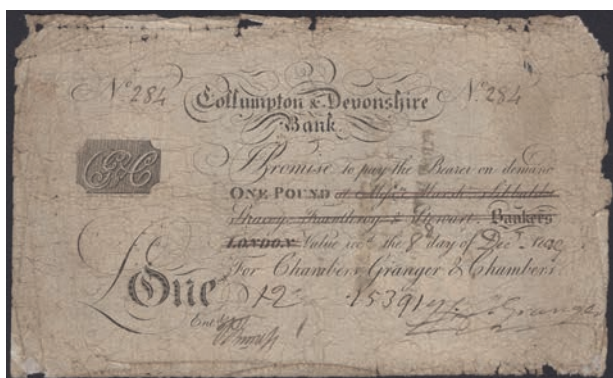 No. 284 No. 284
Collumpton & Devonshire
Bank
GC
I Promise to pay the Bearer on demand
ONE POUND at Messrs. Marsh Sibbalds
Stracey Fauntleroy & Stewart. Bankers
LONDON Value recd. the 8 day of Decr.
For Chambers Granger & Chambers
£One 12 15391
Granger
Entd.